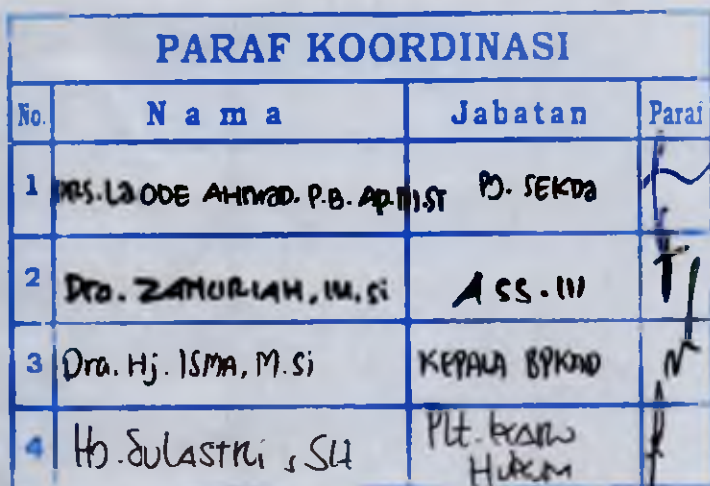 PARAF KOORDINASI
No. Nama Jabatan Paraf
1 DRS. LA ODE AHMAD. P.B. AP.M.ST PJ. SEKDA
2 Dra. ZAMURIAH, M.si ASS.III
3 Dra. Hj. ISMA, M.Si KEPALA BPKAD
4 Hj. SULASTRI, SH Plt. karo
Hukum